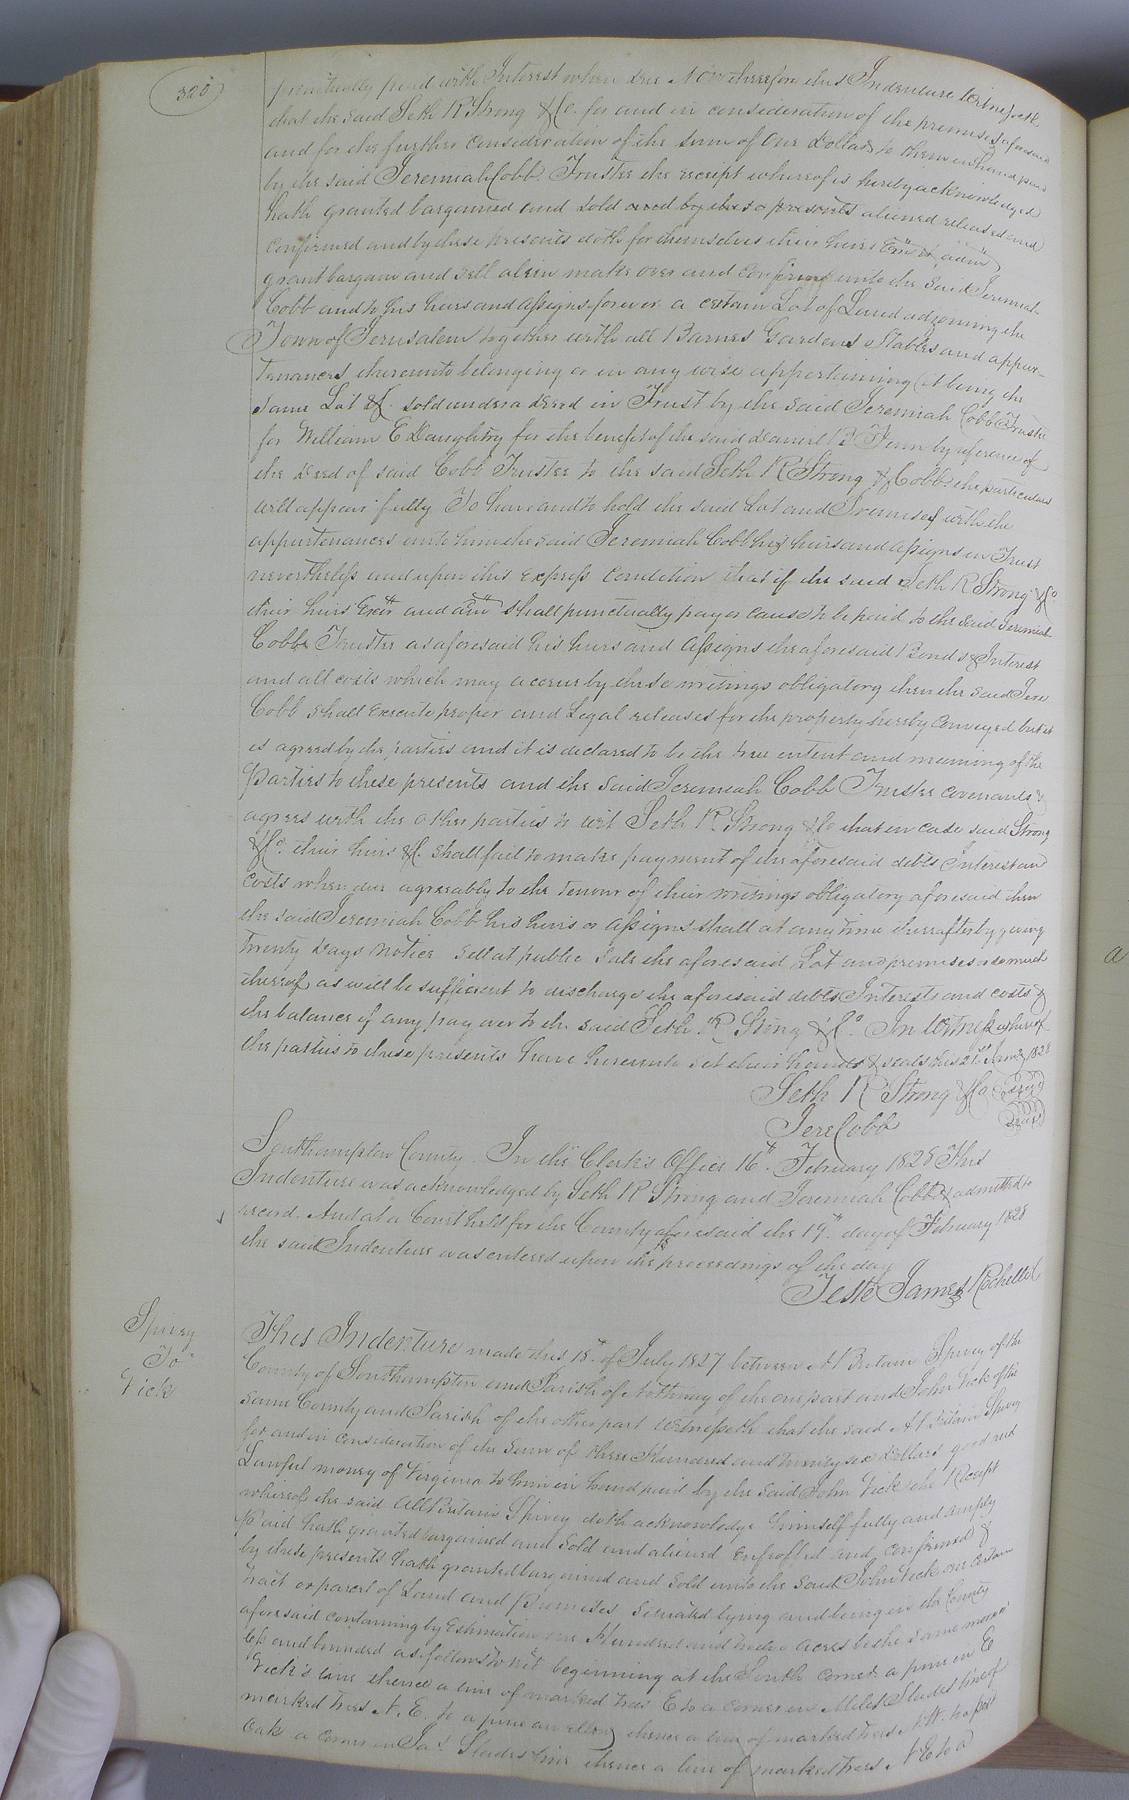 320
punctually paid with Interest when due Now therefore this Indenture Witnesseth
that the said Seth R Strong & Co. for and in consideration of the premises aforesaid
and for the further consideration of the sum of One Dollar to them in hand paid
by the said Jeremiah Cobb Trustee the receipt whereof is hereby acknowledged
hath granted bargained and sold and by these presents aliened released and
confirmed and by these presents doth for themselves their heirs Exrs & adm
grant bargain and sell alien make over and confirm unto the said Jeremiah
Cobb and to his heirs and assigns forever a certain Lot of Land adjoining the
Town of Jerusalem together with all Barnes Gardens Stables and appur-
tenances thereunto belonging or in any wise appertaining (it being the
same Lot &c. sold under a Deed in Trust by the said Jeremiah Cobb Trustee
for William E Daughtry for the benefit of the said Daniel Fenn by reference of
the Deed of said Cobb Trustee to the said Seth R Strong & Cobb the particulars
will appear fully To have and to hold the said Lot and Premises with the
appurtenances unto him the said Jeremiah Cobb his heirs and assigns in Trust
nevertheless and upon this express condition that if the said Seth R Strong & Co
their heirs Exrs and adm shall punctually pay or cause to be paid to the said Jeremiah
Cobb Trustee as aforesaid his heirs and assigns the aforesaid Bonds & Interest
and all costs which may accrue by these writings obligatory then the said Jere
Cobb shall execute proper and Legal releases for the property hereby conveyed but it
is agreed by the parties and it is declared to be the true intent and meaning of the
Parties to these presents and the said Jeremiah Cobb Trustee covenants &
agrees with the other parties to wit Seth R Strong & Co that in case said Strong
& Co. their heirs &c. shall fail to make payment of the aforesaid debts Interest and
costs when due agreeably to the tenour of their writings obligatory aforesaid then
the said Jeremiah Cobb his heirs or assigns shall at any time thereafter by giving
twenty Days notice sell at public sale the aforesaid Lot and premises or so much
thereof as will be sufficient to discharge the aforesaid debts Interests and costs &
the balance if any pay over to the said Seth R Strong & Co. In Witness whereof
the parties to these presents have hereunto set their hands & seals this 21st Jany 1828
Seth R Strong & Co Seal
Jere Cobb Seal
Southampton County. In the Clerk's Office 16th. February 1828 This
Indenture was acknowledged by Seth R Strong and Jeremiah Cobb & admitted to
record. And at a Court held for the County aforesaid the 19th. day of February 1828
the said Indenture was entered upon the proceedings of the day
Teste James Rochelle
Spivey
To
Vick
This Indenture made this 18th. of July 1827 between A Britain Spivey of the
County of Southampton and Parish of Nottoway of the one part and John Vick of the
same County and Parish of the other part Witnesseth that the said A Britain Spivey
for and in consideration of the Sum of three Hundred and twenty six Dollars good and
Lawful money of Virginia to him in hand paid by the said John Vick the Receipt
whereof the said AllBritain Spivey doth acknowledge himself fully and amply
Paid hath granted bargained and sold and aliened enfeoffed and confirmed &
by these presents hath granted bargained and sold unto the said John Vick one certain
tract or parcel of Land and Premises situated lying and being in the County
aforesaid containing by Estimation one Hundred and twelve acres be the same more or
less and bounded as follows to wit beginning at the South corner a pine in E
Vick's line thence a line of marked trees E to a corner in Miles Slades line of
marked trees N. E. to a pine an thence a line of marked trees N. W. to a post
oak a corner in Jas. Slades line thence a line of marked trees N E to a
a